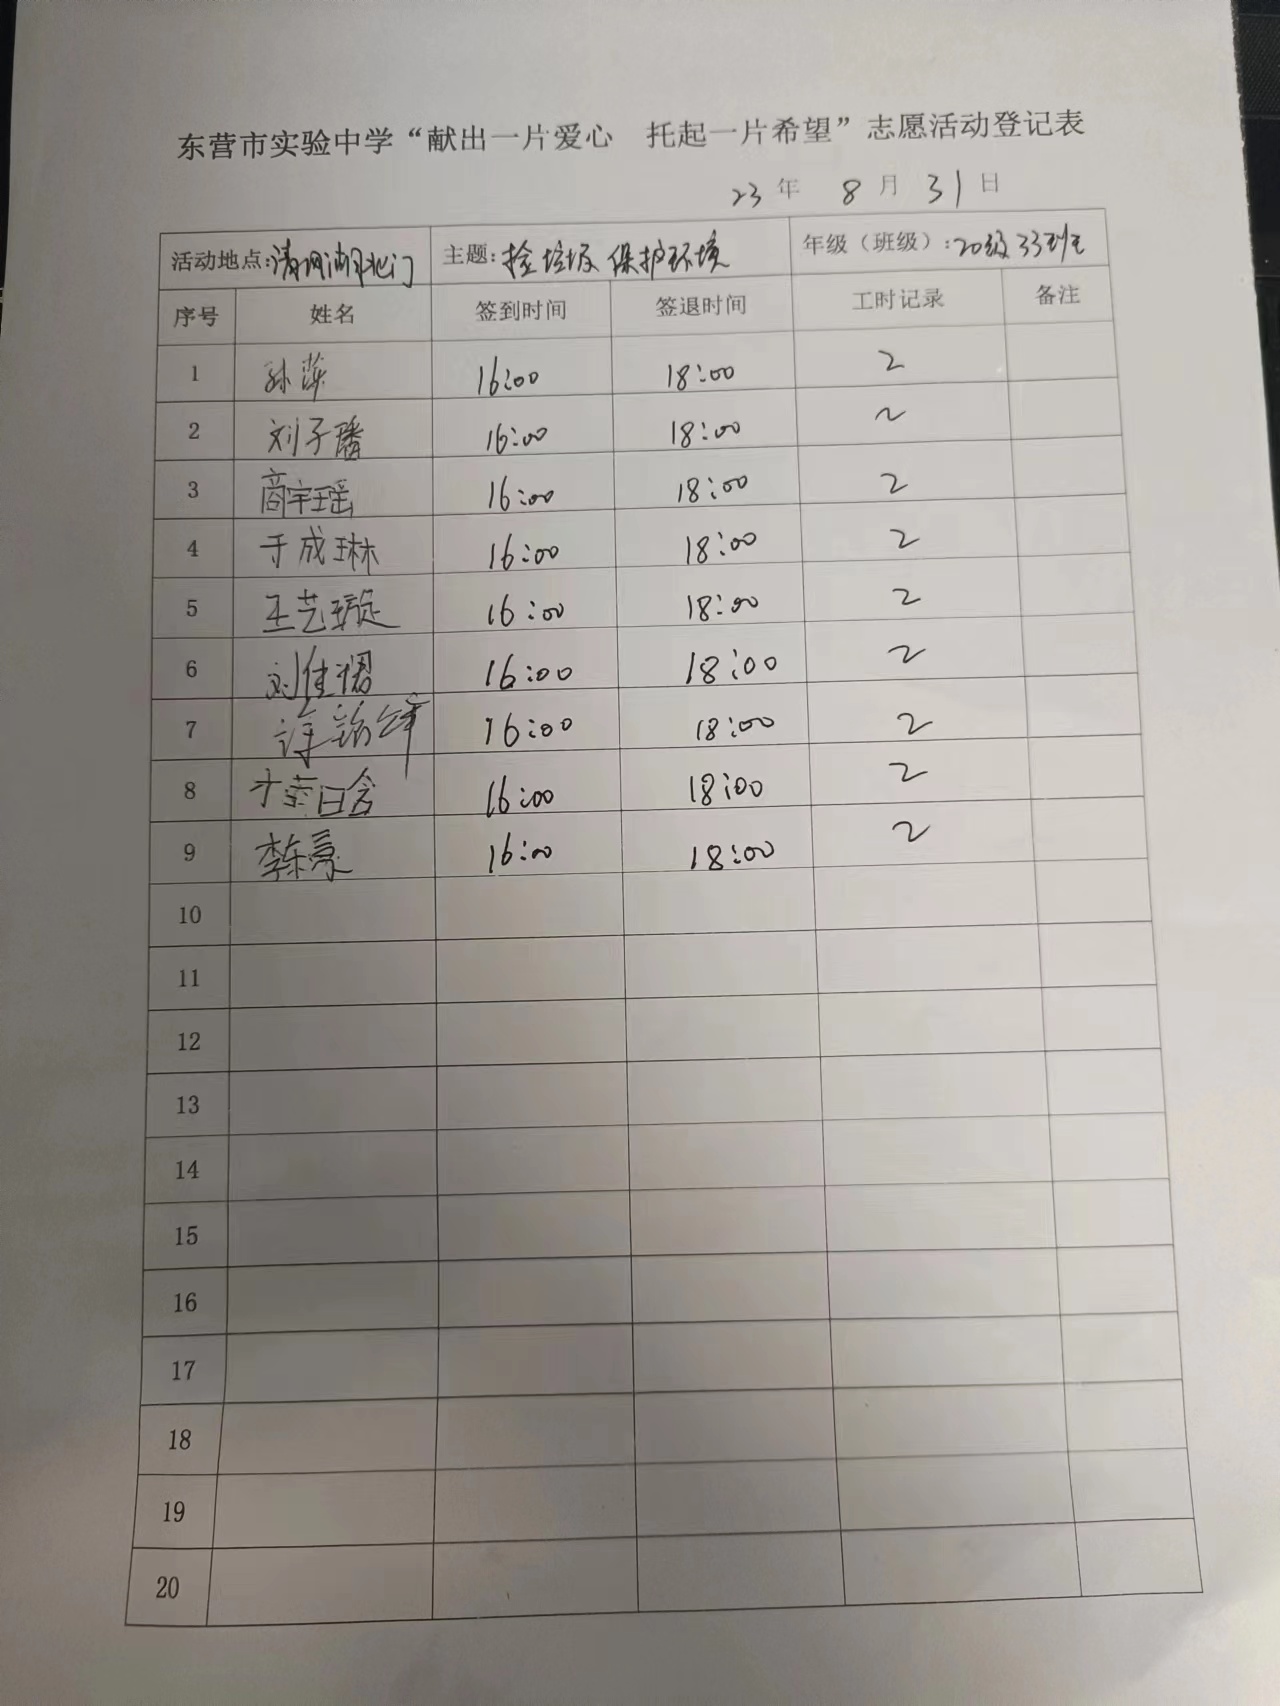 东营市实验中学“献出一片爱心 托起一片希望”志愿活动登记表
23 年 8 月 31 日
活动地点:清风湖北门 主题: 捡垃圾 保护环境 年级（班级）: 20级33班
序号 姓名 签到时间 签退时间 工时记录 备注
1 孙萍 16:00 18:00 2
2 刘子璠 16:00 18:00 2
3 商宇瑶 16:00 18:00 2
4 于成琳 16:00 18:00 2
5 王艺璇 16:00 18:00 2
6 刘佳熠 16:00 18:00 2
7 16:00 18:00 2
8 16:00 18:00 2
9 李东豪 16:00 18:00 2
10
11
12
13
14
15
16
17
18
19
20